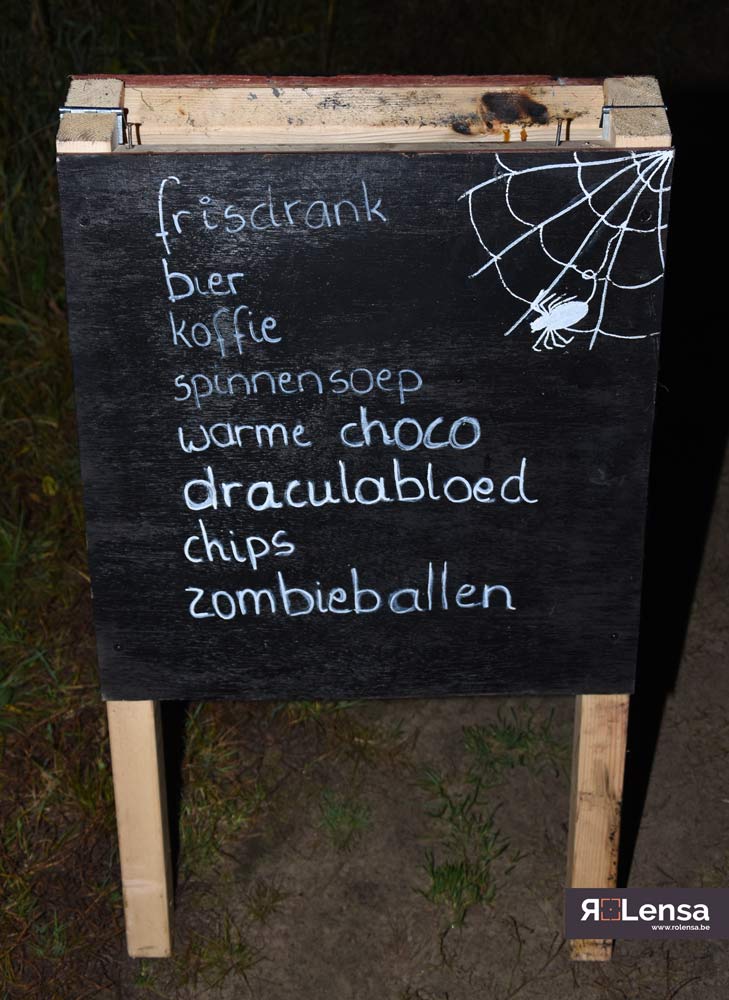 frisdrank
bier
koffie
spinnensoep
warme choco
draculabloed
chips
zombieballen
RoLensa
www.rolensa.be